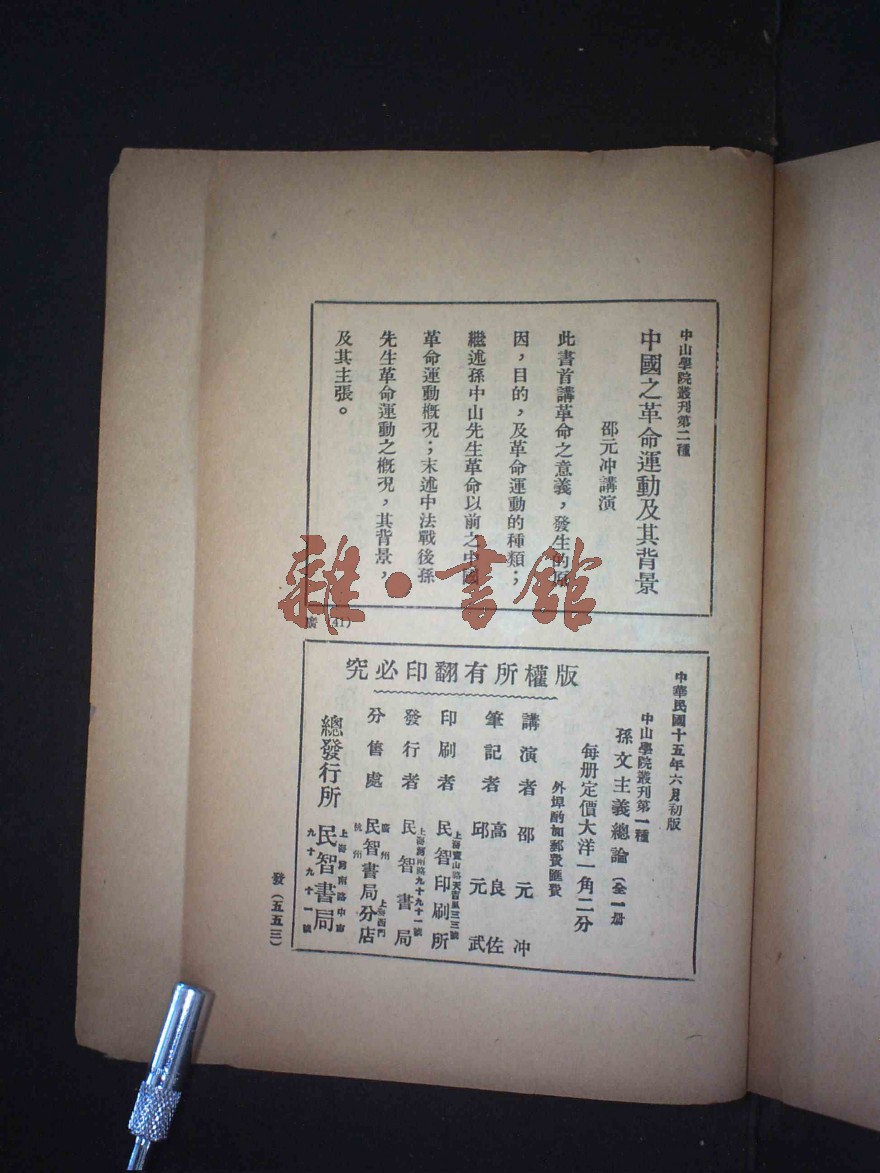 中山學院叢刊第二種
中國之革命運動及其背景
邵元冲講演
此書首講革命之意義，發生的原
因，目的，及革命運動的種類；
繼述孫中山先生革命以前之中國
革命運動概况；末述中法戰後孫
先生革命運動之概况，其背景，
及其主張。
(41)
雜·書館
中華民國十五年六月初版
中山學院叢刊第一種
孫文主義總論（全一册
每册定價大洋一角二分
外埠酌加郵費匯費
版權所有翻印必究
講演者 邵元冲
筆記者 高良佐
邱元武
印刷者 民智印刷所
發行者 上海河南路九十九十一號
民智書局
分售處 廣州 杭州
民智書局分店
上海西門
總發行所 上海河南路中市
民智書局
九十九十一號
發（五五三）